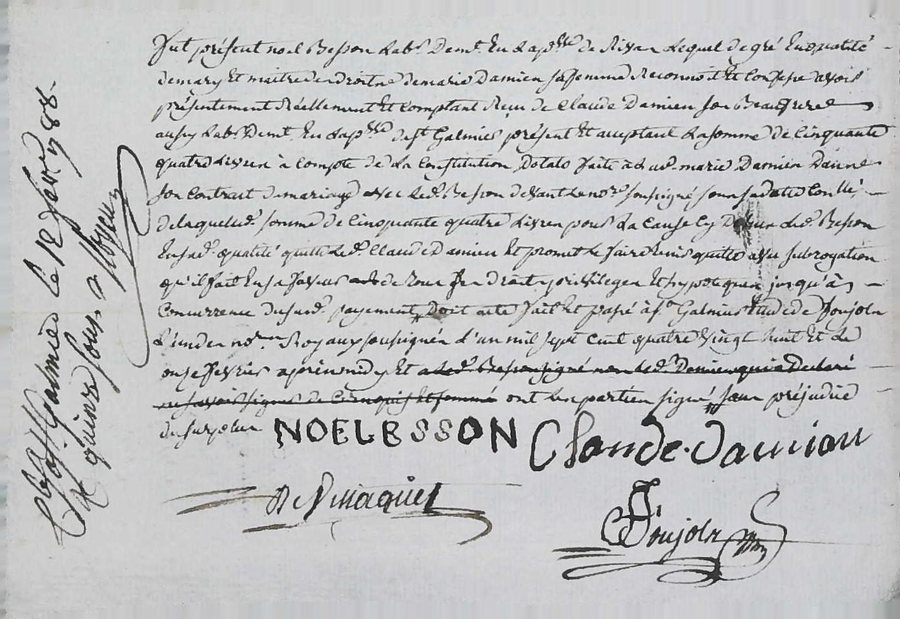 Fut présent noel Besson Lab.r Dem.t En La p.sse de Rivas Lequel de gré En qualité
demary Et maître des Droits de marie Damien sa femme Reconnoit Et Confesse avoir
présentement Réellement Et Comptant Reçu de Claude Damien son Beaufrere
aussy Lab.r Dem.t En La p.sse de S.t Galmier présent Et acceptant La somme de Cinquante
quatre Livres à Compte de La Constitution Dotale faite à lad. marie Damien Dans
son Contrat de mariage avec Led. Besson devant Le no.re soussigné sous sa date
de laquelle d. somme de Cinquante quatre Livres pour La Cause Led. Besson
En sad. qualité quitte Led. Claude Damien Et promet Le faire tenir quitte avec subrogation
qu'il fait En sa faveur de tous ses droits privileges Et hypoteques jusqu'à
Concurrence dususd. payement, Dont acte fait Et passé à S.t Galmier Etude de Poujols
L'un des no.res Royaux soussignés L'an mil sept Cent quatre Vingt huit Et Le
onze fevrier après midy Et
ont Les parties signé, sans préjudice
du surplus
NOEL BSSON Claude Damian
Poujols
à S.t Galmier Le 18 fevr 1788.
quinze sous